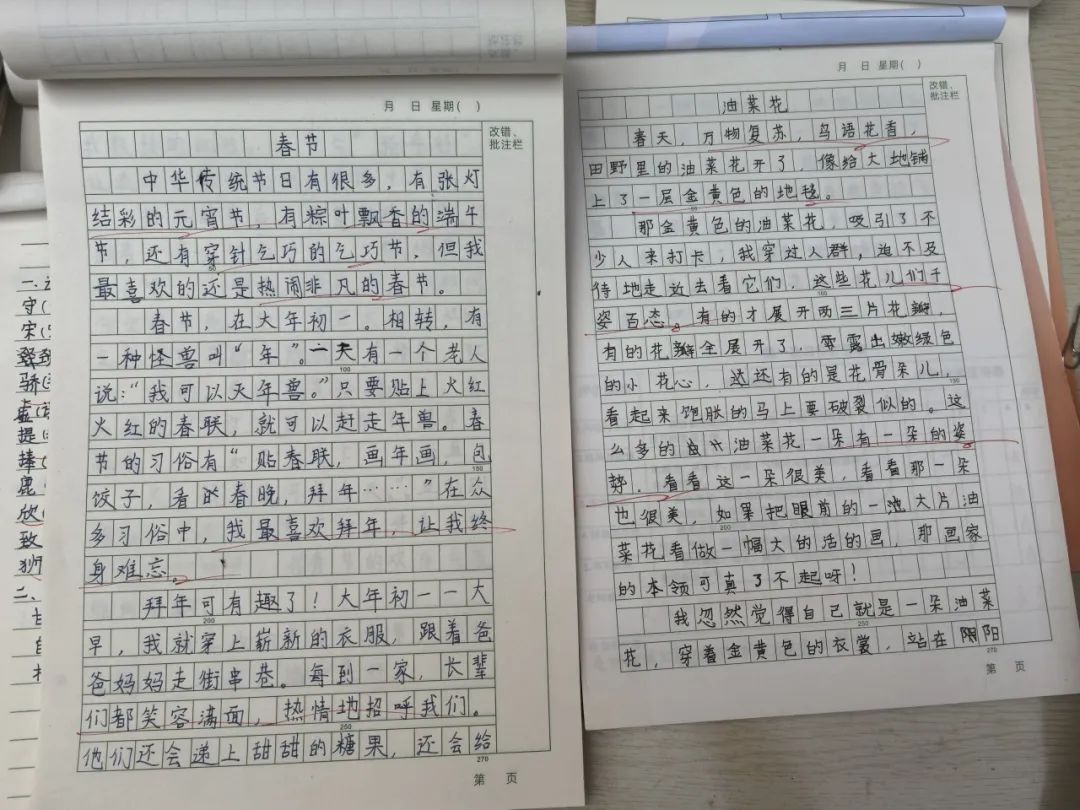 月 日 星期( )
改错、
批注栏
春节
中华传统节日有很多,有张灯
结彩的元宵节,有粽叶飘香的端午
节,还有穿针乞巧的乞巧节,但我
最喜欢的还是热闹非凡的春节。
春节,在大年初一。相转,有
一种怪兽叫“年”。一天有一个老人
说:“我可以灭年兽。”只要贴上火红
火红的春联,就可以赶走年兽。春
节的习俗有“贴春联,画年画,包
饺子,看春晚,拜年……”在众
多习俗中,我最喜欢拜年,让我终
身难忘。
拜年可有趣了!大年初一一大
早,我就穿上崭新的衣服,跟着爸
爸妈妈走街串巷。每到一家,长辈
们都笑容满面,热情地招呼我们。
他们还会递上甜甜的糖果,还会给
第 页
月 日 星期( )
改错、
批注栏
油菜花
春天,万物复苏,鸟语花香,
田野里的油菜花开了,像给大地铺
上了一层金黄色的地毯。
那金黄色的油菜花,吸引了不
少人来打卡,我穿过人群,迫不及
待地走近去看它们,这些花儿们千
姿百态。有的才展开两三片花瓣,
有的花瓣全展开了,露出嫩绿色
的小花心,还有的是花骨朵儿,
看起来饱胀的马上要破裂似的。这
么多的油菜花一朵有一朵的姿
势,看看这一朵很美,看看那一朵
也很美,如果把眼前的一大片油
菜花看做一幅大的活的画,那画家
的本领可真了不起呀!
我忽然觉得自己就是一朵油菜
花,穿着金黄色的衣裳,站在阳
第 页
守(
宋(
骄(
提(
捧(
鹿(
欣(
致
狮
二、